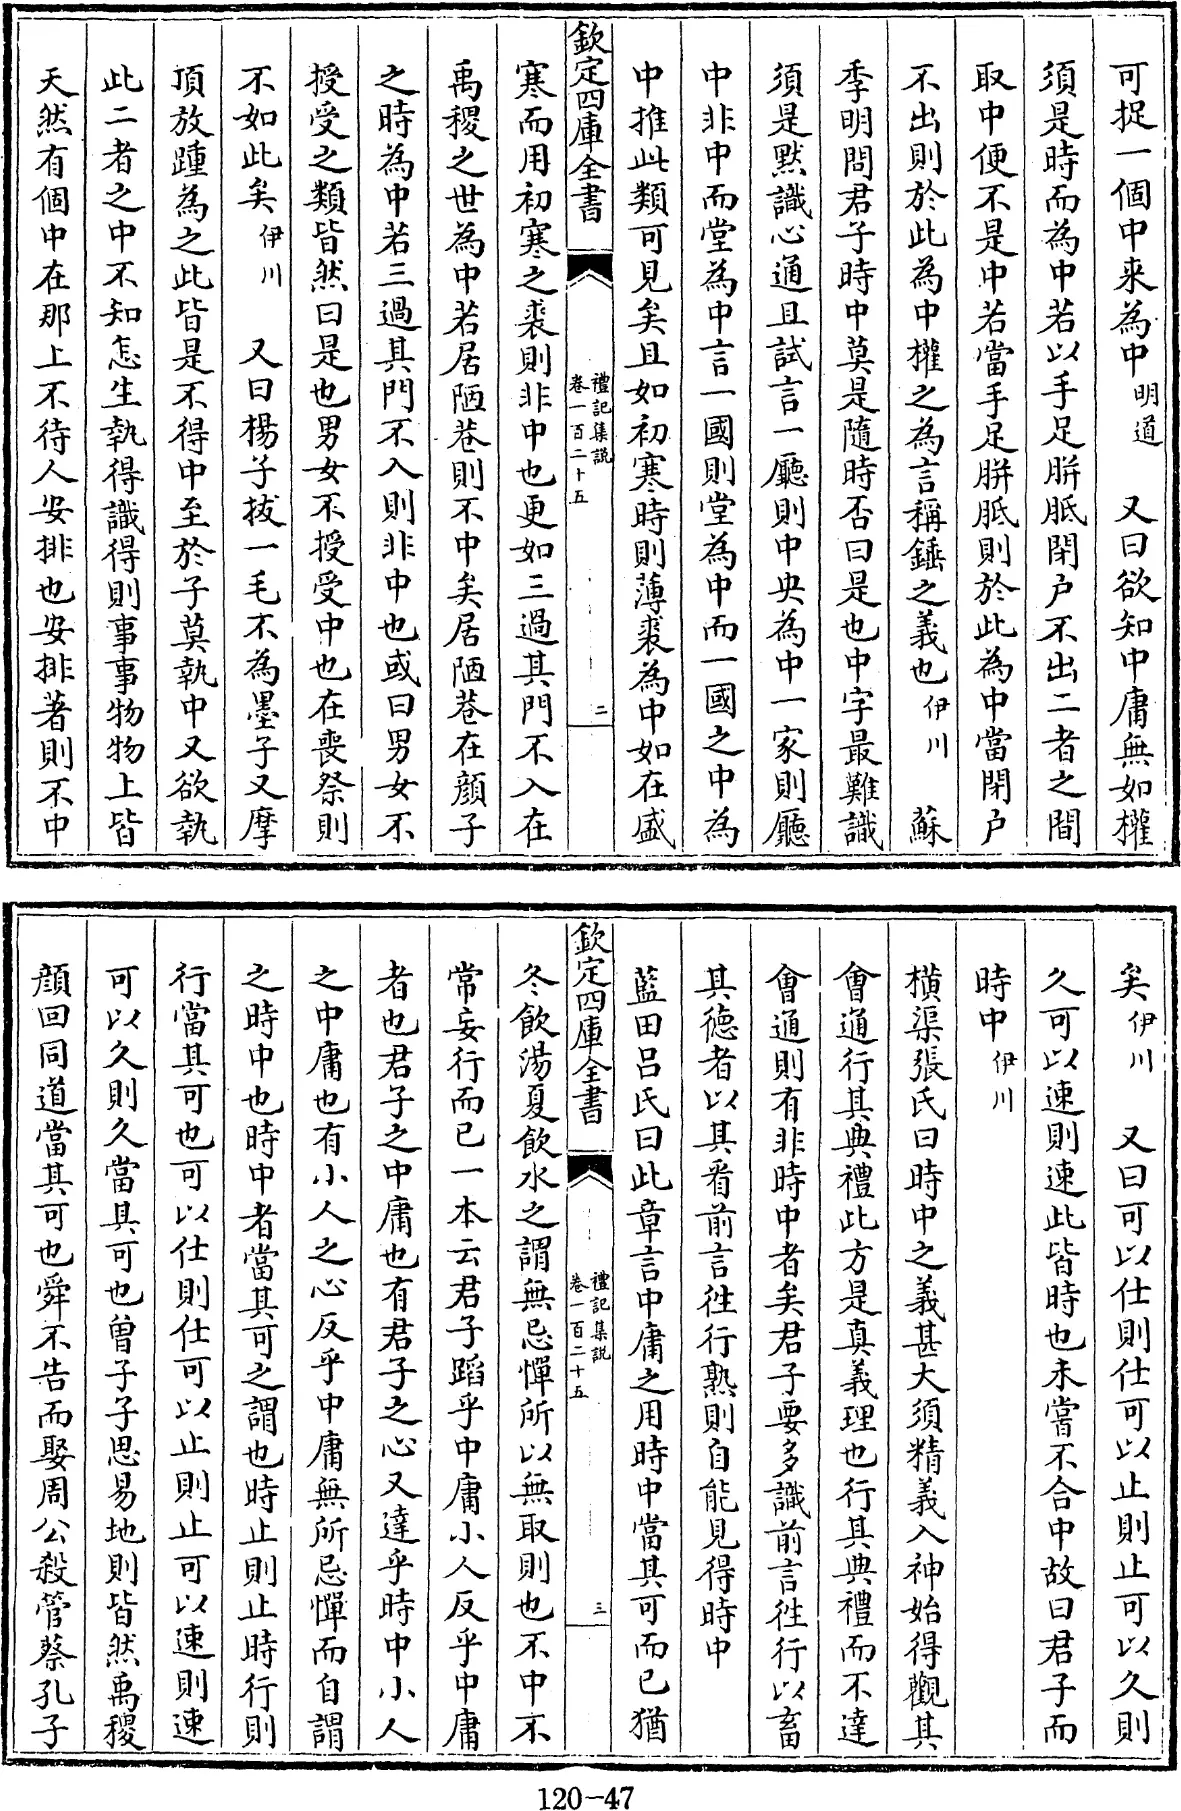 可捉一個中来為中 明道 又曰欲知中庸無如權
須是時而為中若以手足胼胝閉户不出二者之間
取中便不是中若當手足胼胝則於此為中當閉户
不出則於此為中權之為言稱錘之義也 伊川 蘇
季明問君子時中莫是隨時否曰是也中字最難識
須是黙識心通且試言一廳則中央為中一家則廳
中非中而堂為中言一國則堂為中而一國之中為
中推此類可見矣且如初寒時則薄裘為中如在盛
欽定四庫全書 禮記集説 卷一百二十五 二
寒而用初寒之裘則非中也更如三過其門不入在
禹稷之世為中若居陋巷則不中矣居陋巷在顔子
之時為中若三過其門不入則非中也或曰男女不
授受之類皆然曰是也男女不授受中也在喪祭則
不如此矣 伊川 又曰楊子拔一毛不為墨子又摩
頂放踵為之此皆是不得中至於子莫執中又欲執
此二者之中不知怎生執得識得則事事物物上皆
天然有個中在那上不待人安排也安排著則不中
矣 伊川 又曰可以仕則仕可以止則止可以久則
久可以速則速此皆時也未嘗不合中故曰君子而
時中 伊川
横渠張氏曰時中之義甚大須精義入神始得觀其
會通行其典禮此方是真義理也行其典禮而不達
會通則有非時中者矣君子要多識前言徃行以畜
其德者以其看前言徃行熟則自能見得時中
藍田吕氏曰此章言中庸之用時中當其可而已猶
欽定四庫全書 禮記集説 卷一百二十五 三
冬飲湯夏飲水之謂無忌憚所以無取則也不中不
常妄行而已一本云君子蹈乎中庸小人反乎中庸
者也君子之中庸也有君子之心又達乎時中小人
之中庸也有小人之心反乎中庸無所忌憚而自謂
之時中也時中者當其可之謂也時止則止時行則
行當其可也可以仕則仕可以止則止可以速則速
可以久則久當其可也曽子子思易地則皆然禹稷
顔回同道當其可也舜不告而娶周公殺管蔡孔子
120-47